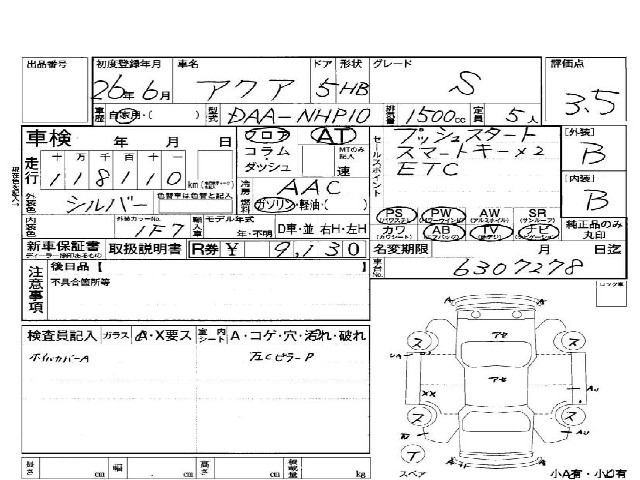 出品番号 初度登録年月 車名 ドア 形状 グレード 評価点
26年6月 アクア 5 HB S 3.5
車歴 自家用・( ) 型式 DAA-NHP10 排気量 1500cc 定員 5人
車検 年 月 日 フロア AT セールスポイント プッシュスタート [外装]
走行 十 万 千 百 十 一 コラム・ダッシュ MTのみ記入 速 スマートキー×2 B
1 1 8 1 1 0 km 冷房 AAC ETC [内装]
外装色 シルバー 色替車は色替と記入 燃料 ガソリン・軽油・( ) B
内装色 外装カラーNo. 1F7 輸入車 モデル年式 年・不明 D車・並 右H・左H PS PW AW SR
カワ AB TV ナビ 純正品のみ丸印
新車保証書 取扱説明書 R券 ¥ 9,130 名変期限 月 日迄
注意事項 後日品【 】 車台No. 6307278
不具合箇所等 ロック車
検査員記入 ガラス A・X要ス 室内シート A・コゲ・穴・汚れ・破れ
ホイルカバーA 左Cピラー P
アセ
ス ス
アセ
XX
ス ス
T
スペア
長さ cm 幅 cm 高さ cm 積載量 kg 小A有・小U有